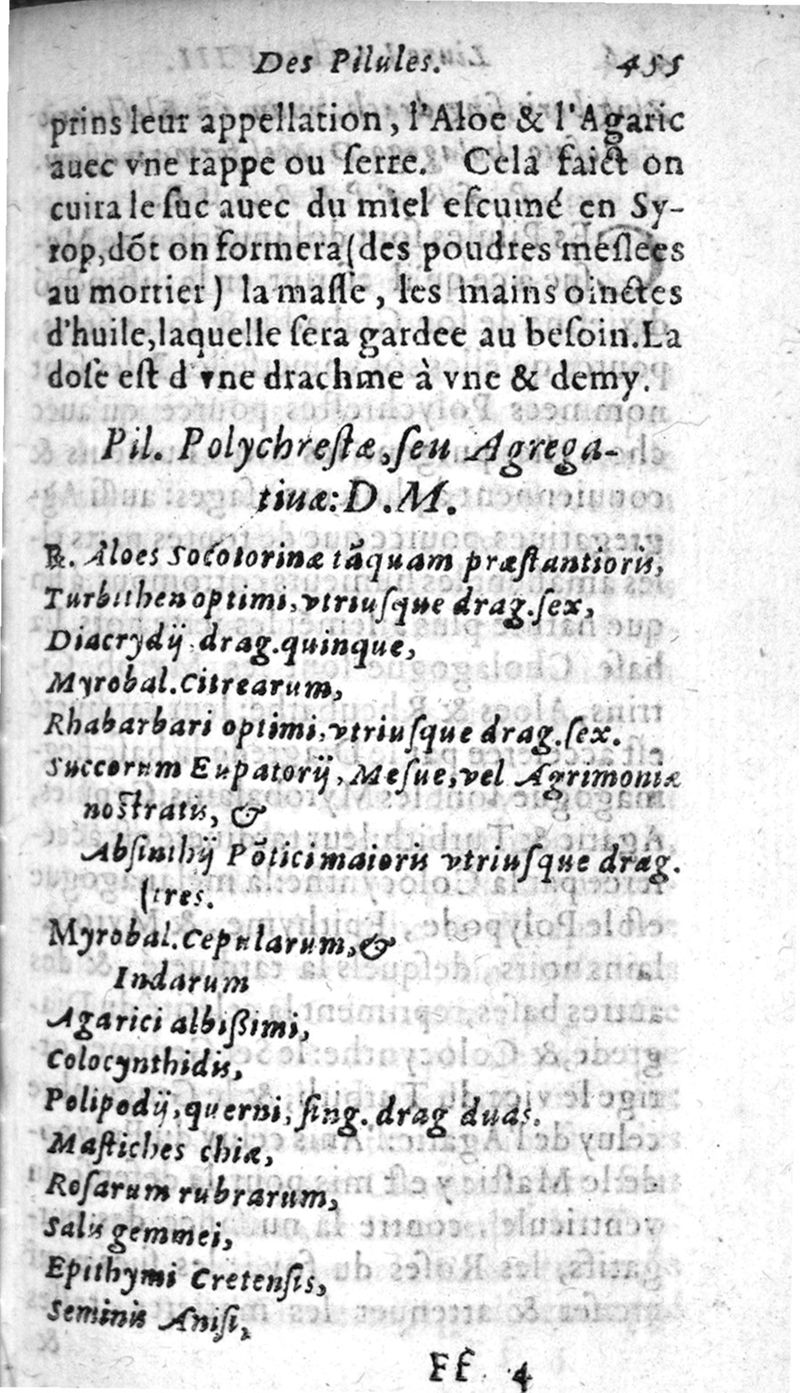 Des Pilules. 455
prins leur appellation, l'Aloe & l'Agaric
auec vne rappe ou ſerre. Cela faict on
cuira le ſuc auec du miel eſcumé en Sy-
rop, dõt on formera (des poudres meſlees
au mortier) la maſſe, les mains oinctes
d'huile, laquelle ſera gardee au beſoin. La
doſe eſt d vne drachme à vne & demy.
Pil. Polychreſtæ, ſeu Agrega-
tiuæ: D. M.
℞. Aloes Socotorinæ tãquam præſtantioris,
Turbithen optimi, vtriuſque drag. ſex,
Diacrydij. drag. quinque,
Myrobal. Citrearum,
Rhabarbari optimi, vtriuſque drag. ſex.
Succorum Eupatorij, Meſue, vel Agrimoniæ
noſtratis, &
Abſinthij Põtici maioris vtriuſque drag.
(tres.
Myrobal. Cepularum, &
Indarum
Agarici albißimi,
Colocynthidis,
Polipodij, querni, ſing. drag duas.
Maſtiches chiæ,
Roſarum rubrarum,
Salis gemmei,
Epithymi Cretenſis,
Seminis Aniſi,
Ff 4